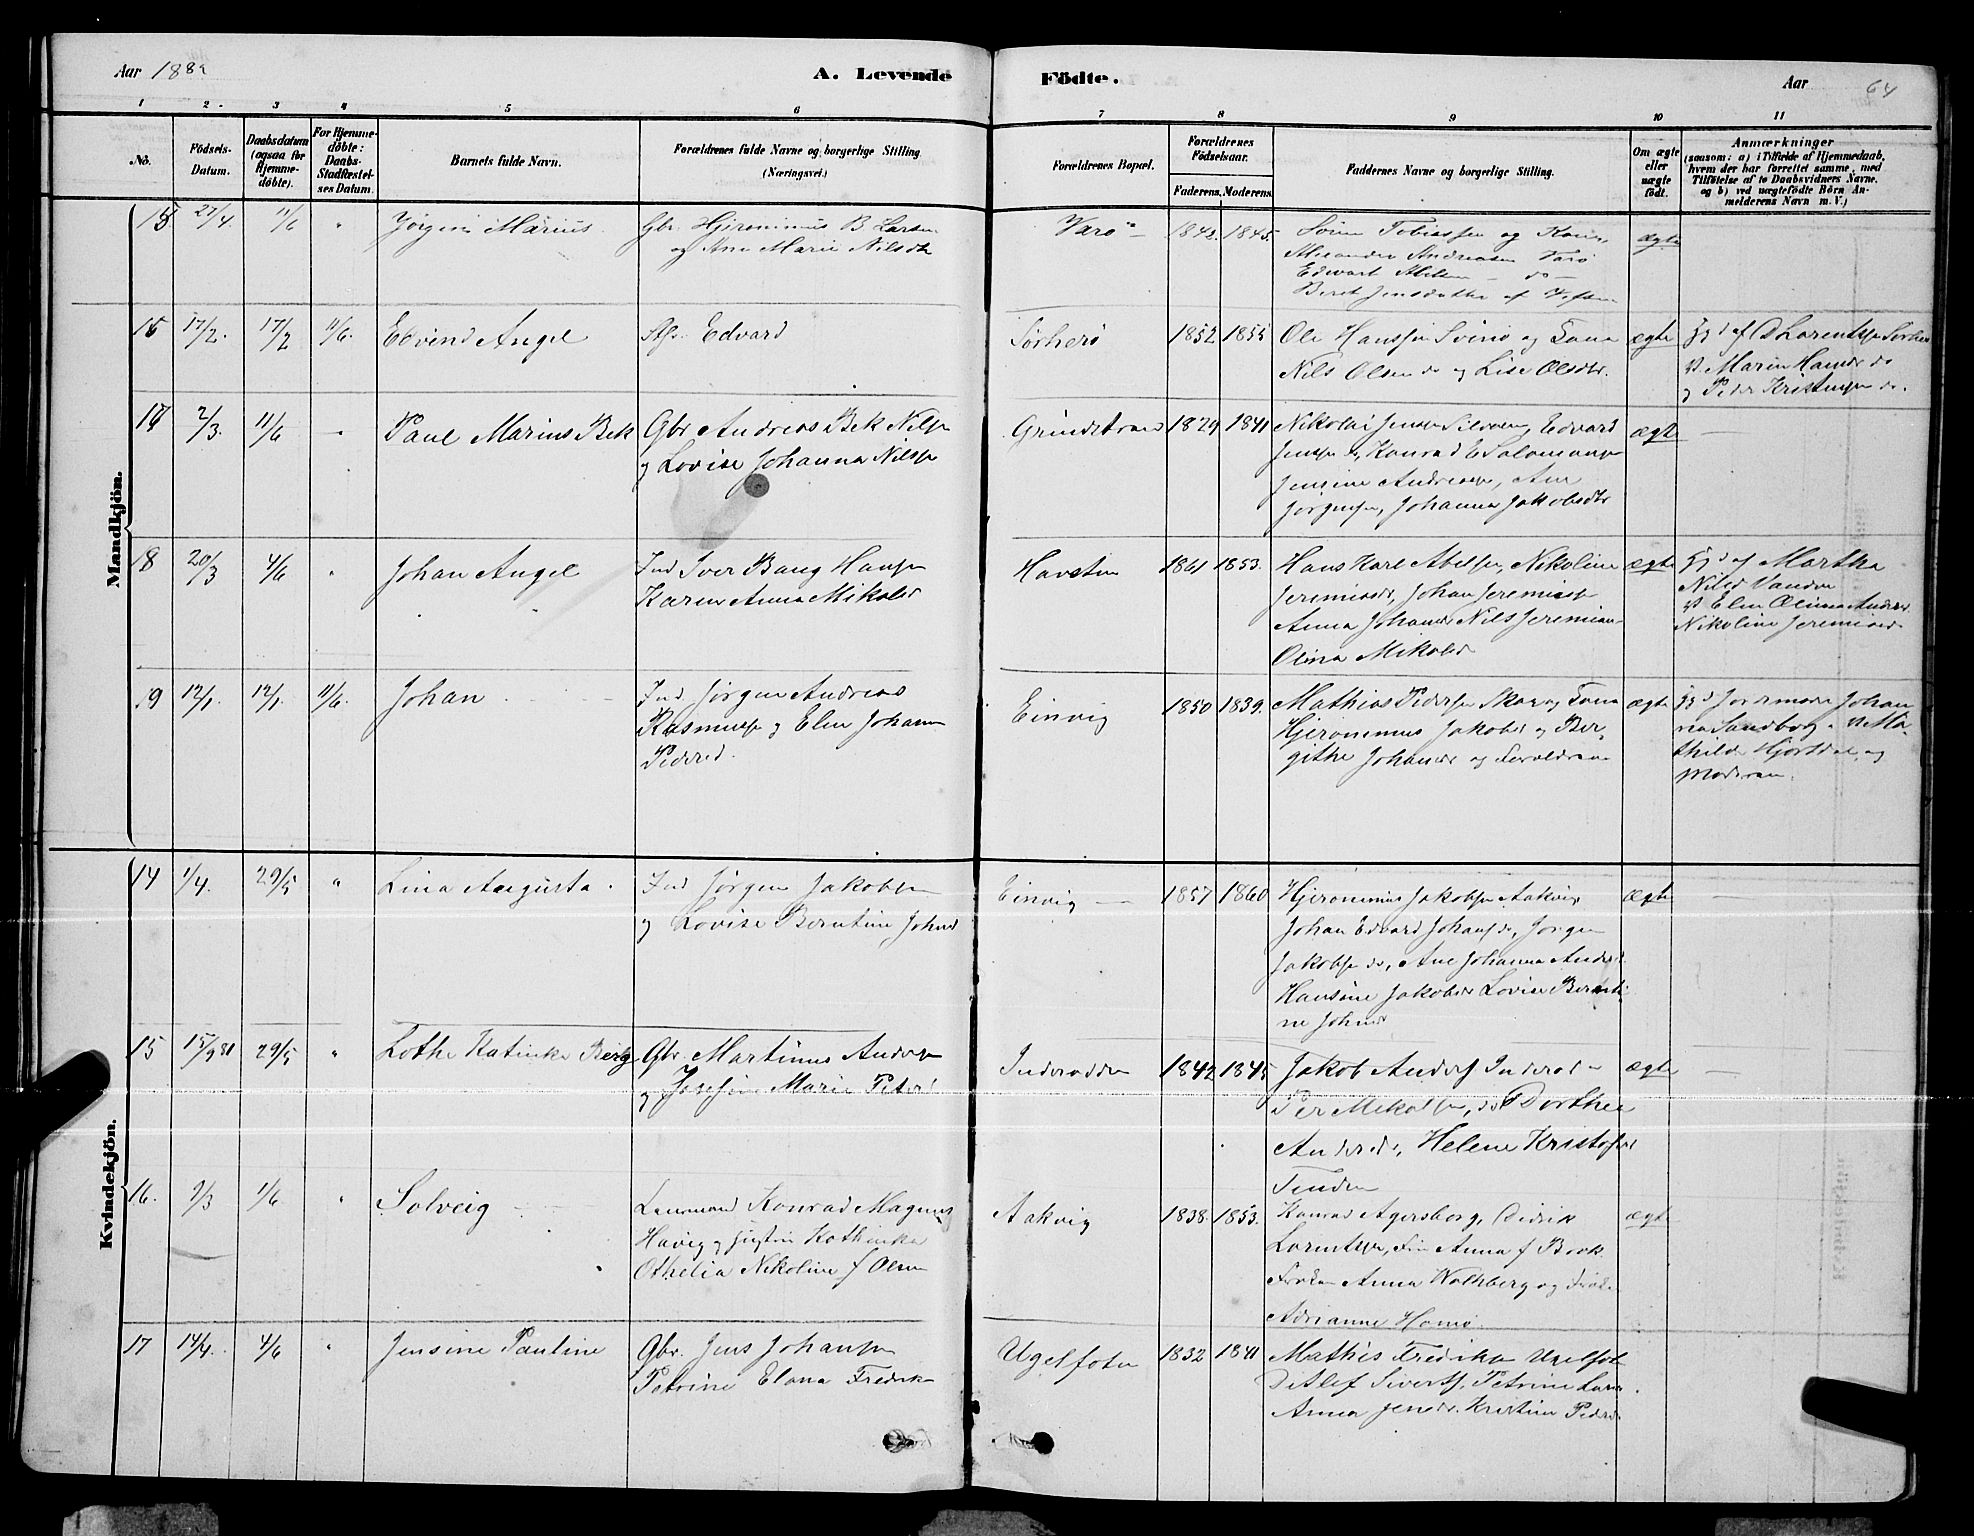 Aar 188
A. Levende
Födte.
Aar
64
1 2 3 4 5 6 7 8 9 10 11
No.
Födsels-
Datum.
Daabsdatum
(ogsaa for
Hjemme-
döbte).
For Hjemme-
döbte:
Daabs-
Stadfæstel-
ses Datum.
Barnets fulde Navn.
Forældrenes fulde Navne og borgerlige Stilling
(Næringsvei.)
Forældrenes Bopæl.
Forældrenes
Födselsaar.
Faderens. Moderens.
Faddernes Navne og borgerlige Stilling.
Om ægte
eller
uægte
födt.
Anmærkninger
(saasom: a) i Tilfælde af Hjemmedaab,
hvem der har forrettet samme, med
Tilföielse af to Daabsvidners Navne,
og b) ved uægtefödte Börn An-
melderens Navn m. V.)
Mandkjön.
15 27/4 11/6 " Jörgin Marius
Gbr. Hjeronimus B Larsen
og Ane Marie Nilsdtr
Varö 1842. 1845.
Sören Tobiassen og Kone,
Andreasen Varö
Edvart
Beret Jensdatter af
ægte
16 17/2. 17/2 11/6. Edvind Angel
Edvard
Sörherö 1852 1855
Ole Hanssen Svinö og Kona
Nils Olsen do og Lise Olsdtr.
ægte
af D Lorentsen
Marie Hansdr do
og Peder Kristensen do.
17 2/3. 11/6 Paul Marius Bek
Gbr Andreas Bek Nilsen
og Lovise Johanna Nilsen
Grundstrand 1829 1841
Nikolai Jensen Edvard
Jensen do, Konrad E Salomonsen
Jensine Andreasen, Ane
Jörgensen, Johanna Jakobsdtr
ægte
18 20/3 4/6 " Johan Angel
Ind Iver Bang Hansen
Karen Anna Mikalsd
Havsten 1861 1853.
Hans Karl Abelsen, Nikoline
Jeremiasdr, Johan Jeremiasen
Anna Johansdr Nils Jeremiasen
Olina Mikalsd
ægte
af Martha
Nilsd Vandve
Elen Olina Andersd
Nikoline Jeremiasd.
19 12/1 12/1. 11/6. Johan
Ind Jörgen Andreas
Rasmussen og Elen Johanna
Pedersd.
Einvig 1850 1839.
Mathias Pedersen Skar og Kona
Hjeronimus Jakobsd og Ber-
githe Johansdr og Forældrene
ægte
Jordmoder Johan
na Sandberg Ma-
thilde Hjortdal og
Moderen.
Kvindekjön.
14 1/4. 29/5 " Lina Augusta.
Ind Jörgen Jakobsen
og Lovise Berntine Johnsd
Einvig 1857 1860
Hjeronimus Jakobsen Aakvig
Johan Edvard Johansen do, Jörgen
Jakobsen do, Ane Johanna Andersd
Hansine Jakobsdr Lovise Bernti
ne Johnsd
ægte
15 15/9 81 29/5 " Lothe Katinka Berg
Gbr. Martinus Andersen
og Josefine Marie Petersd
Inderodden 1842 1845
Jakob Anders Inderod
Per Mikalsen, do Dorthea
Andersd, Helene Kristofersd
Tenden
ægte
16. 2/3 1/6 " Solveig
Lensmand Konrad Magnus
Havig og Hustru Kathinka
Othelia Nikoline f Olsen
Aakvig 1838. 1853.
Konrad Agersborg, Didrik
Lorentsen, Anna f Book
Fröken Anna Wolhberg og Fröken
Adrianne Homö
ægte
17 14/4. 4/6 " Jensine Pauline
Gbr. Jens Johansen
Petrine Elana Fredrik
Ugelfoten 1832 1841
Mathis Fredriksen Ugelfot
Detlef Sivertsen, Petrine Lars
Anna Jensdr. Kristine Pedersd